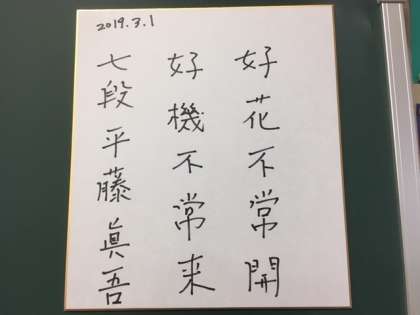 2019.3.1
好花不常開
好機不常来
七段 平藤眞吾